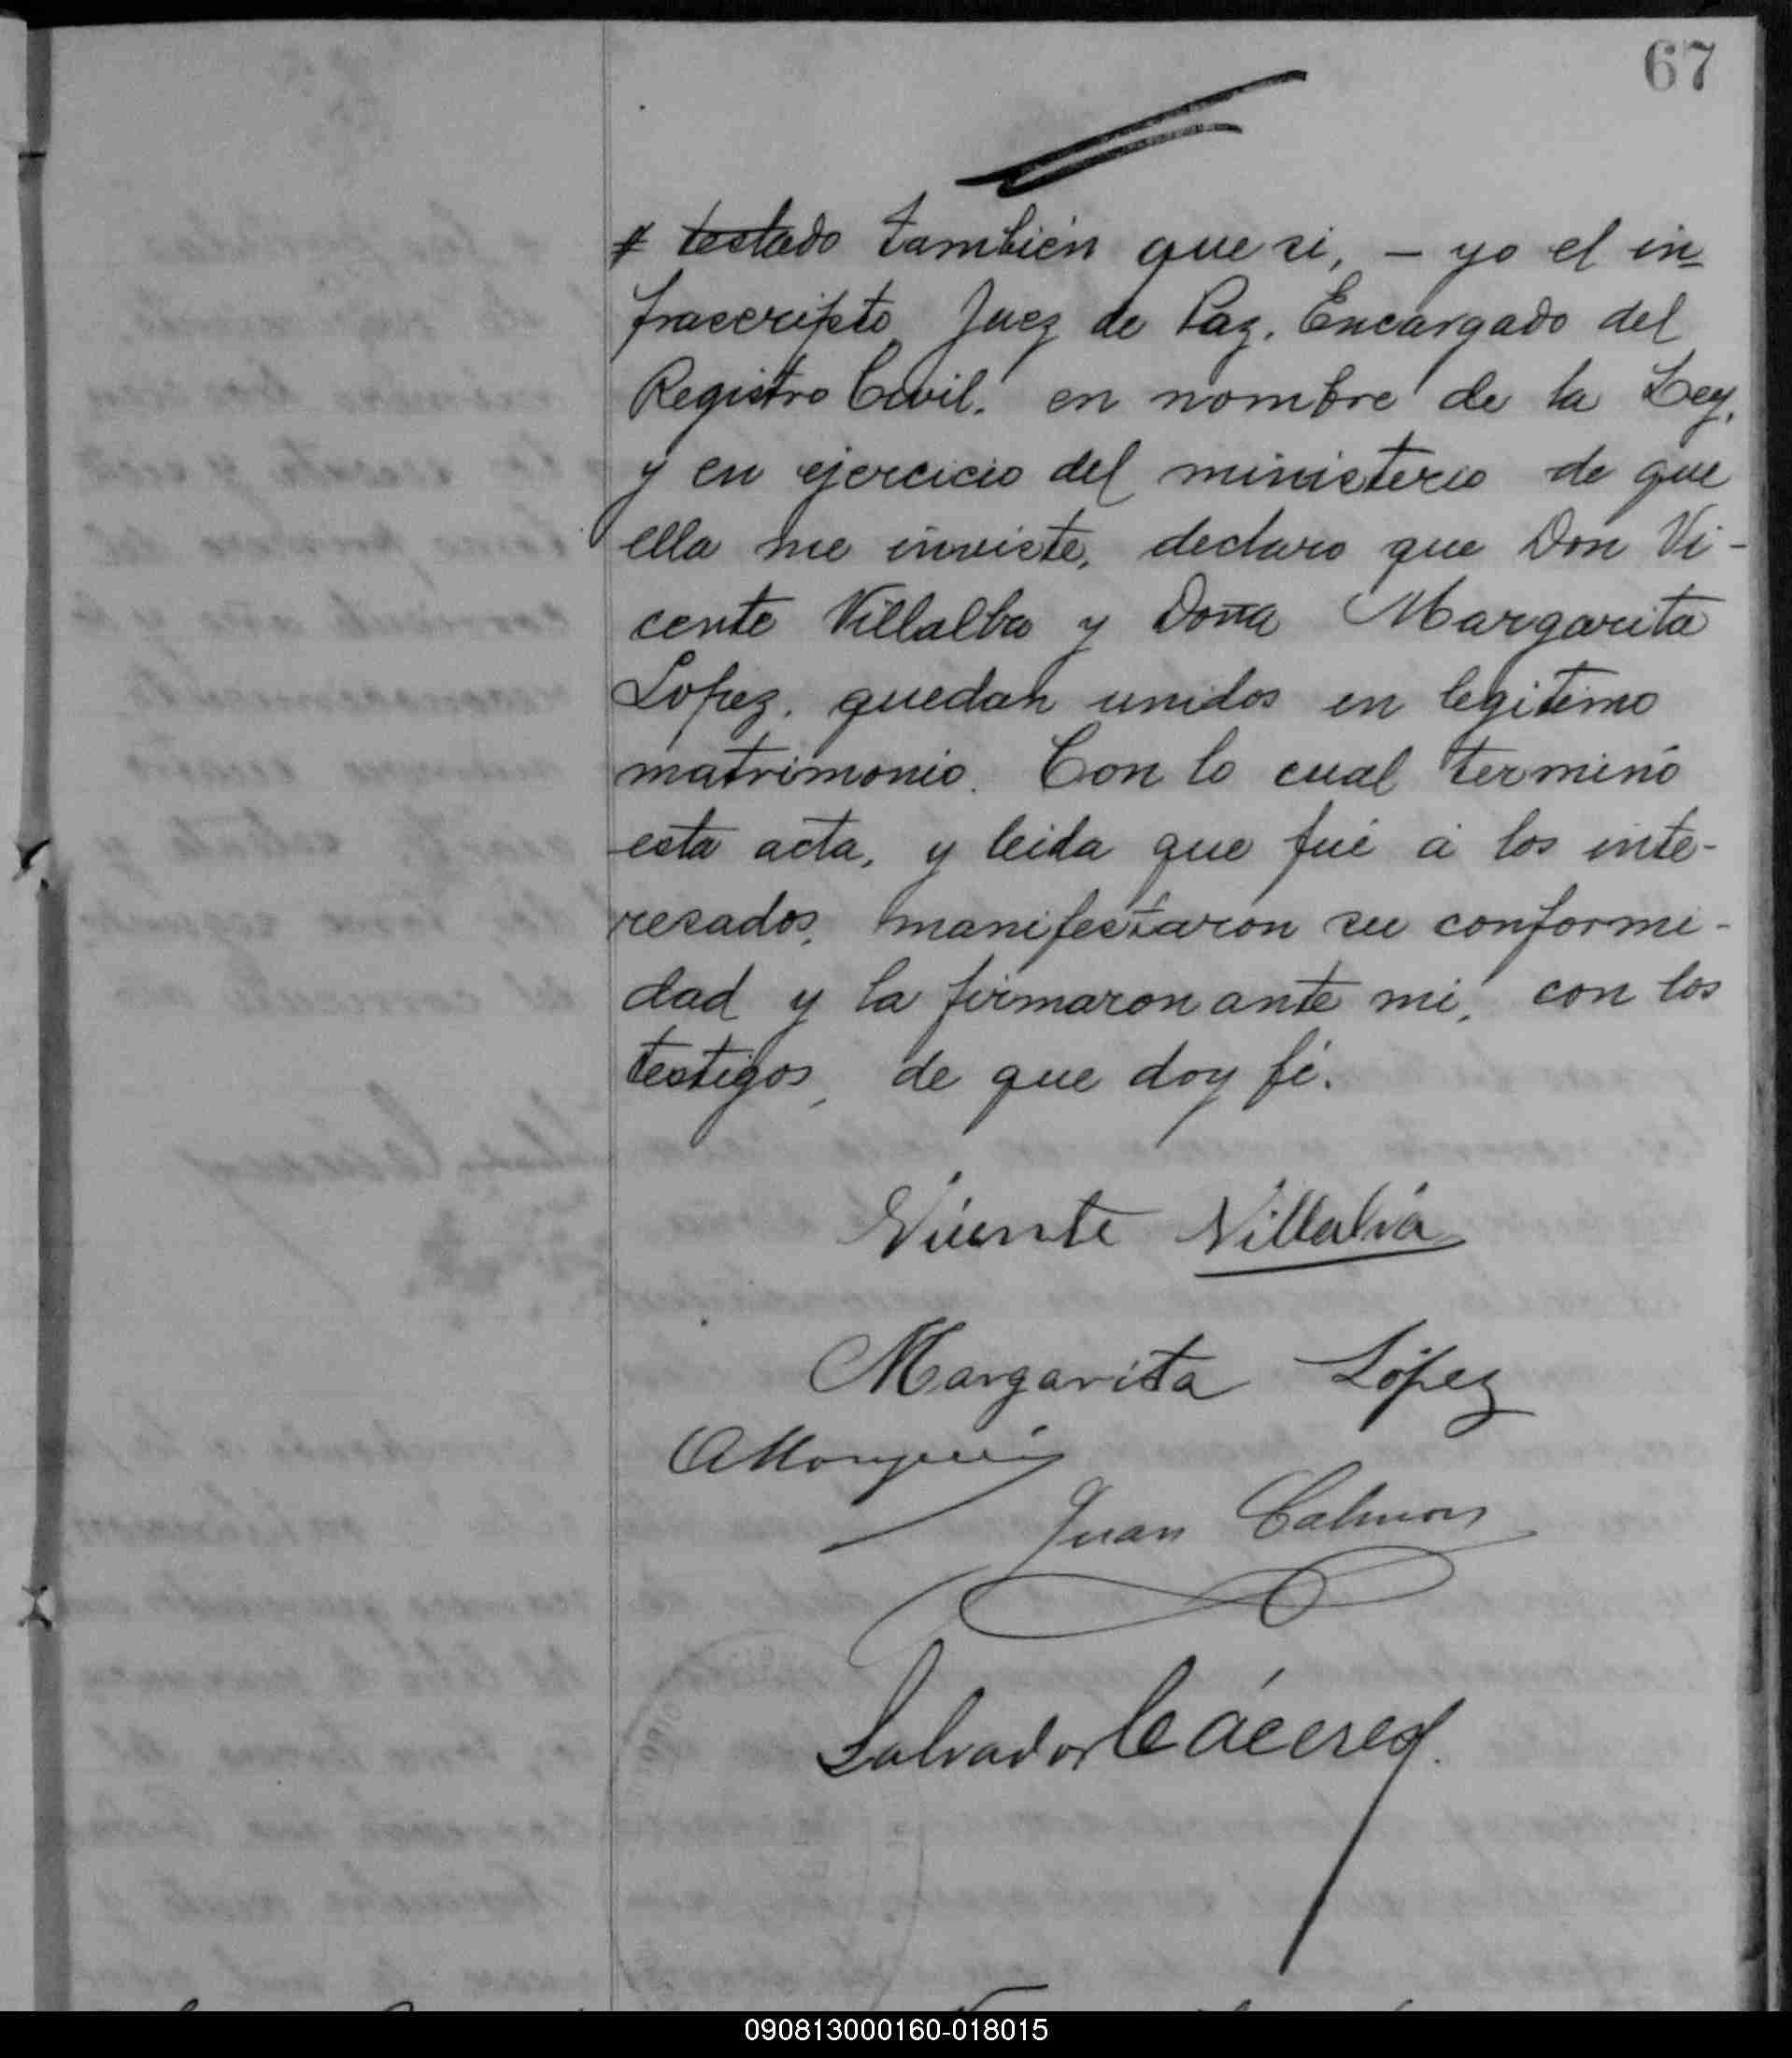 67
# testado también que si, - yo el in-
frascripto Juez de Paz. Encargado del
Registro Civil. en nombre de la Ley,
y en ejercicio del ministerio de que
ella me inviste, declaro que Don Vi-
cente Villalba y Doña Margarita
Lopez. quedan unidos en legitimo
matrimonio. Con lo cual terminó
esta acta, y leida que fué á los inte-
resados, manifestaron su conformi-
dad y la firmaron ante mi, con los
testigos, de que doy fé.
Vicente Villalba
Margarita López
Juan Calmon
Salvador Cáceres
090813000160-018015